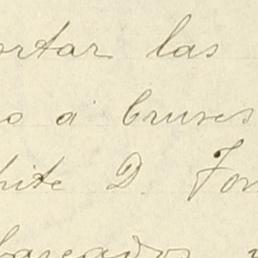 ortar las
o á cruses
hite D. For
bareador